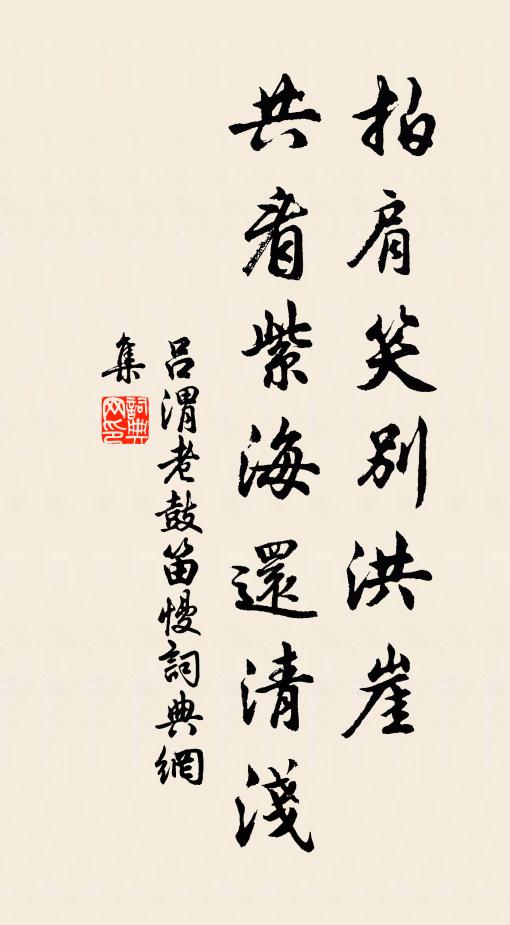 拍肩笑別洪崖
共看紫海還清淺
吕渭老鼓笛慢詞典網
集
詞典
网印